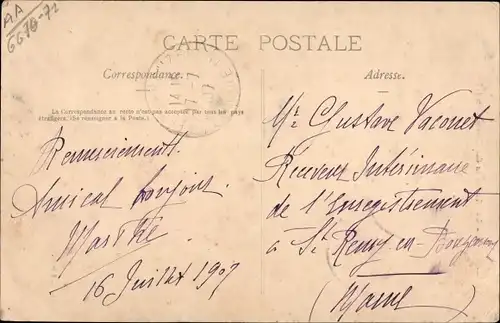 AA
6670-71
CARTE POSTALE
Correspondance.
La Correspondance au recto n'est pas acceptée par tous les pays
étrangers. (Se renseigner à la Poste.)
Remerciement.
Amical bonjour
Marthe
16 Juillet 1907
Adresse.
Mr. Gustave Vaconet
Receveur Intérimaire
de l'Enregistrement
à St Remy en Bouzemont
(Marne)